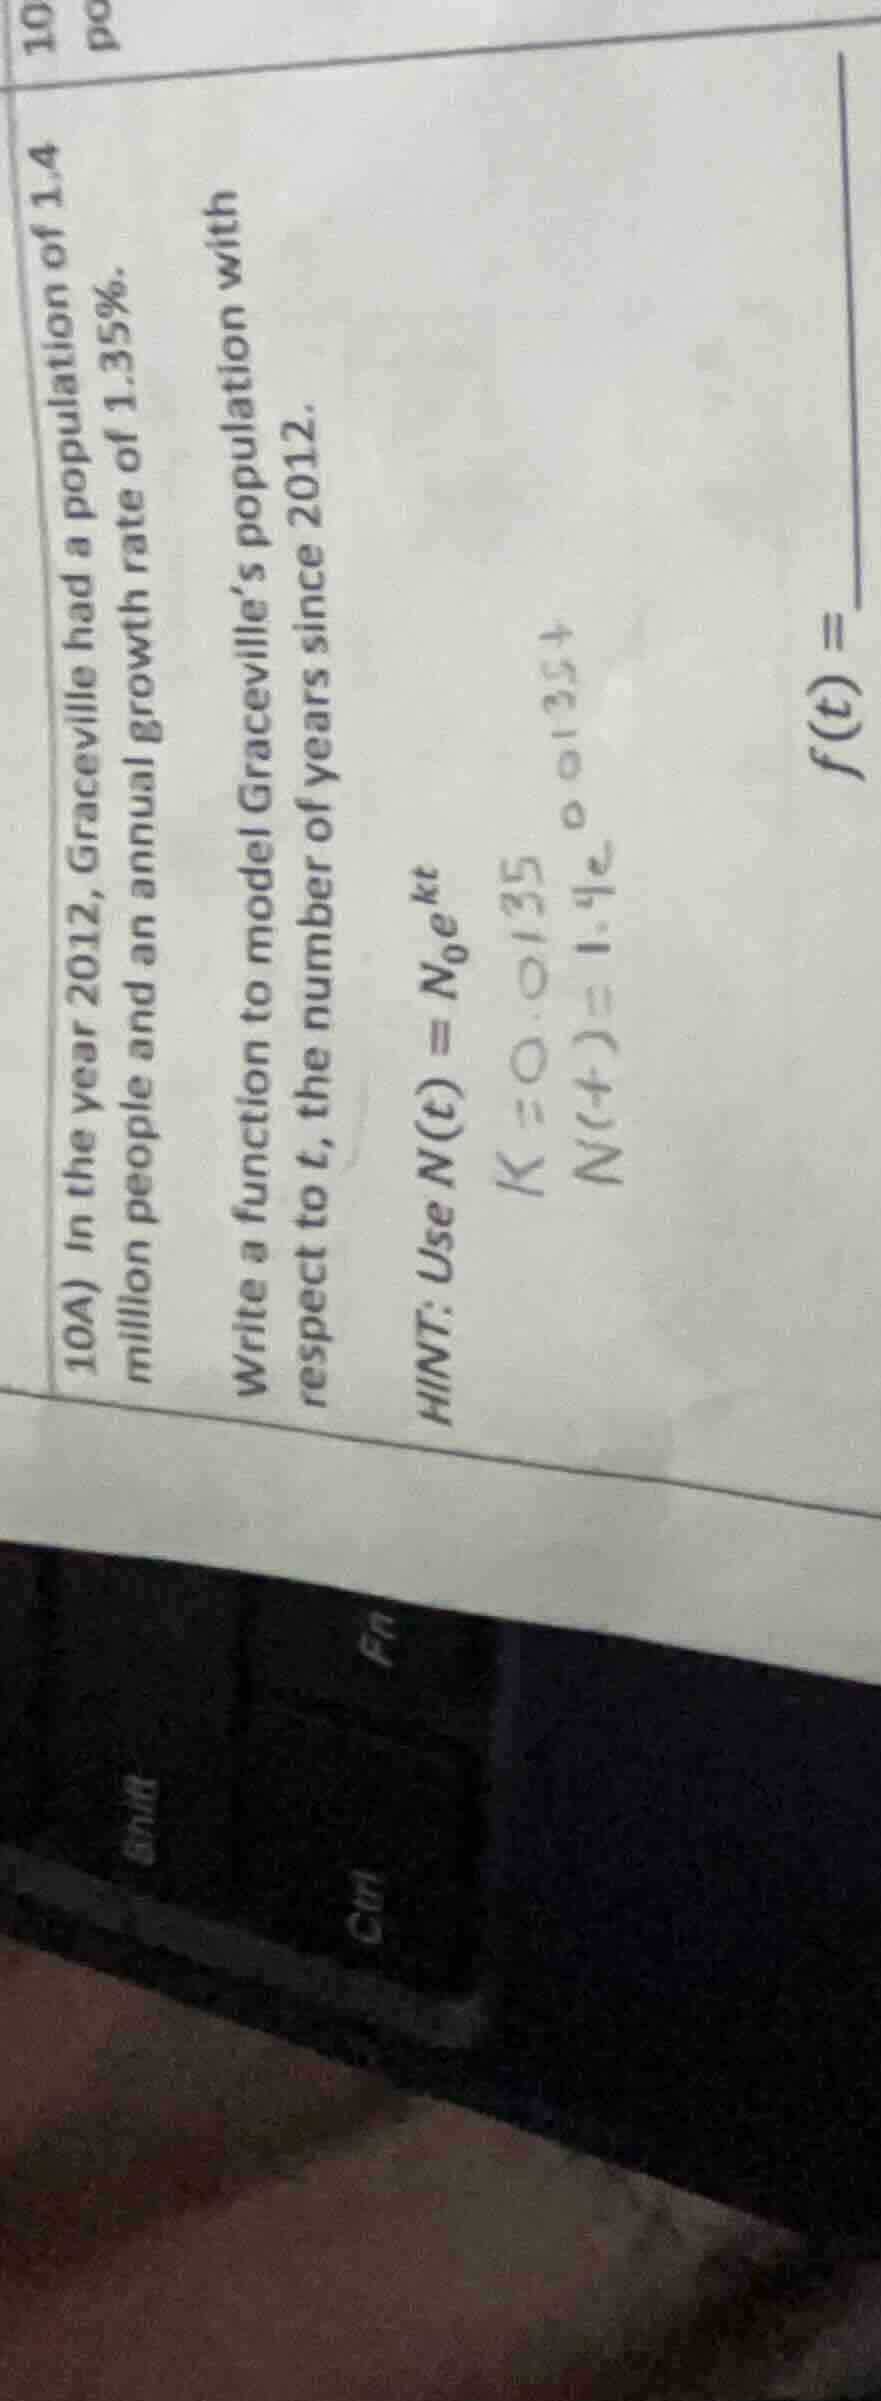 10
po
10A) In the year 2012, Graceville had a population of 1.4
million people and an annual growth rate of 1.35%.
Write a function to model Graceville's population with
respect to t, the number of years since 2012.
HINT: Use N(t) = N₀e^{kt}
K = 0.0135
N(t) = 1.4e^{0.0135t}
f(t) =
Shift
Fn
Ctrl